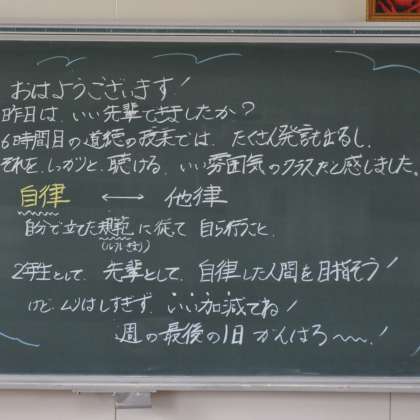 おはようございます!
昨日は、いい先輩できましたか?
6時間目の道徳の授業では、たくさん発言も出るし、
それを、しっかりと、聴ける、いい雰囲気のクラスだと感じました。
自律 ←→ 他律
自分で立てた規範に従って 自ら行うこと。
(ルールきまり)
2年生として、先輩として、自律した人間を目指そう!
けど、ムリはしすぎず、いい加減でね!
週の最後の1日 がんばろ〜〜!